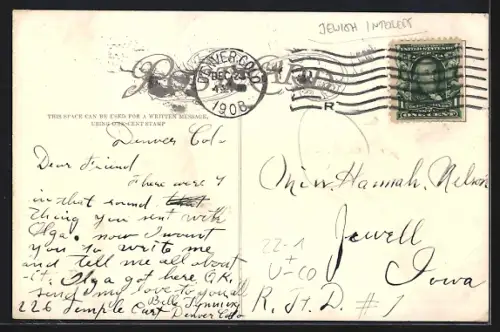 JEWISH INTEREST
Post Card
DENVER, COLO.
DEC 23
1908
R
UNITED STATES OF
ONE CENT
THIS SPACE CAN BE USED FOR A WRITTEN MESSAGE,
USING ONE-CENT STAMP
Denver Colo
Dear Friend
There were 4
in that round
thing you sent with
Olga. now I want
you to write me
and tell me all about
it. Olga got here O.K.
send my love to you all
Belle
226 Temple Curt Denver Colo
Miss. Hannah. Nelson
Jewell
Iowa
R. F. D. # 1
22-1
+
U-CO